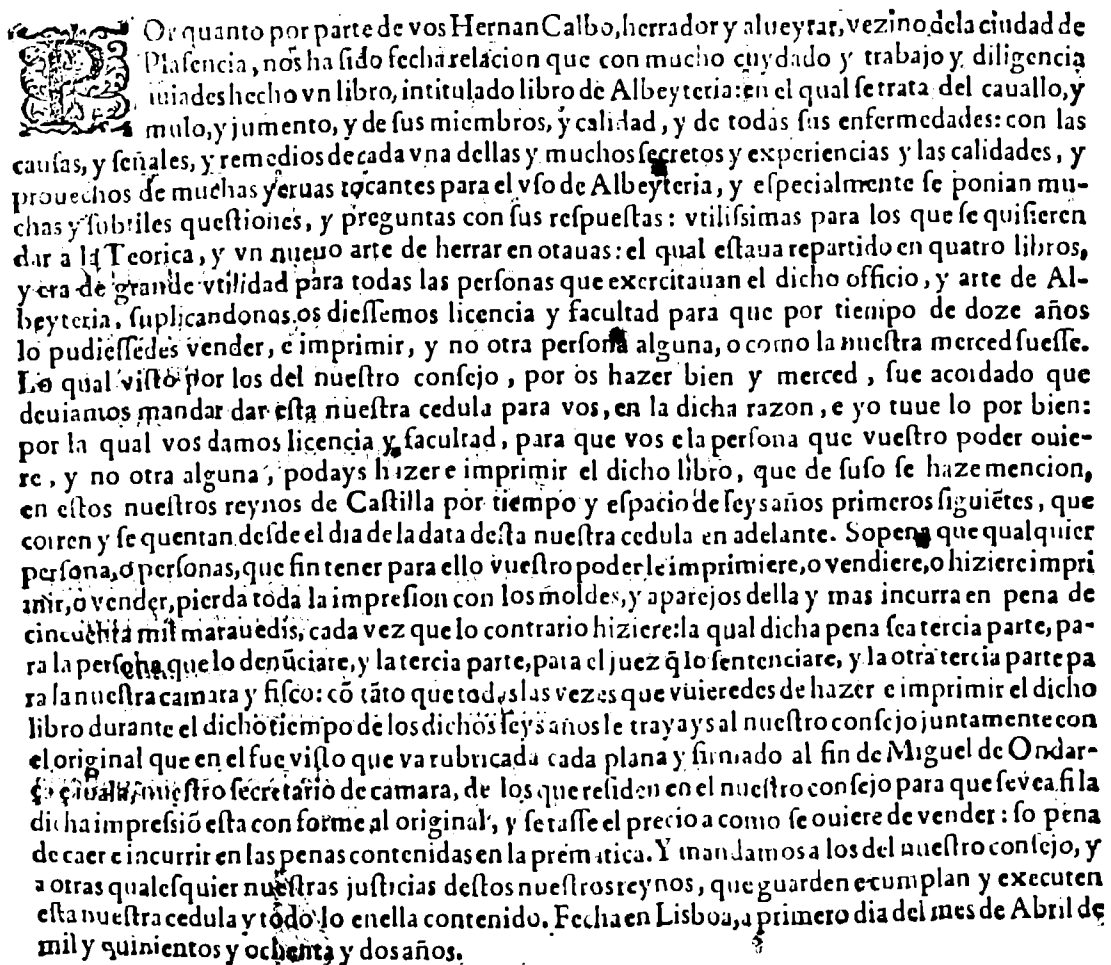 POr quanto por parte de vos Hernan Calbo, herrador y alueytar, vezino dela ciudad de
Plasencia, nos ha sido fecha relacion que con mucho cuydado y trabajo y diligencia
auiades hecho vn libro, intitulado libro de Albeyteria: en el qual se trata del cauallo, y
mulo, y jumento, y de sus miembros, y calidad, y de todas sus enfermedades: con las
causas, y señales, y remedios de cada vna dellas y muchos secretos y experiencias y las calidades, y
prouechos de muchas yeruas tocantes para el vso de Albeyteria, y especialmente se ponian mu-
chas y subtiles questiones, y preguntas con sus respuestas: vtilissimas para los que se quisieren
dar a la Teorica, y vn nueuo arte de herrar en otauas: el qual estaua repartido en quatro libros,
y era de grande vtilidad para todas las personas que exercitauan el dicho officio, y arte de Al-
beyteria, suplicandonos os diessemos licencia y facultad para que por tiempo de doze años
lo pudiessedes vender, e imprimir, y no otra persona alguna, o como la nuestra merced fuesse.
Lo qual visto por los del nuestro consejo, por os hazer bien y merced, fue acordado que
deuiamos mandar dar esta nuestra cedula para vos, en la dicha razon, e yo tuue lo por bien:
por la qual vos damos licencia y facultad, para que vos e la persona que vuestro poder ouie-
re, y no otra alguna, podays hazer e imprimir el dicho libro, que de suso se haze mencion,
en estos nuestros reynos de Castilla por tiempo y espacio de seys años primeros siguiẽtes, que
corren y se quentan desde el dia de la data desta nuestra cedula en adelante. So pena que qualquier
persona, o personas, que sin tener para ello vuestro poder le imprimiere, o vendiere, o hiziere impri
mir, o vender, pierda toda la impresion con los moldes, y aparejos della y mas incurra en pena de
cincuenta mil marauedis, cada vez que lo contrario hiziere: la qual dicha pena sea tercia parte, pa-
ra la persona que lo denũciare, y la tercia parte, para el juez q̃ lo sentenciare, y la otra tercia parte pa
ra la nuestra camara y fisco: cõ tãto que todas las vezes que vuieredes de hazer e imprimir el dicho
libro durante el dicho tiempo de los dichos seys años le trayays al nuestro consejo juntamente con
el original que en el fue visto que va rubricada cada plana y firmado al fin de Miguel de Ondar-
nuestro secretario de camara, de los que residen en el nuestro consejo para que se vea si la
dicha impressiõ esta conforme al original, y se tasse el precio a como se ouiere de vender: so pena
de caer e incurrir en las penas contenidas en la prematica. Y mandamos a los del nuestro consejo, y
a otras qualesquier nuestras justicias destos nuestros reynos, que guarden e cumplan y executen
esta nuestra cedula y todo lo en ella contenido. Fecha en Lisboa, a primero dia del mes de Abril de
mil y quinientos y ochenta y dos años.